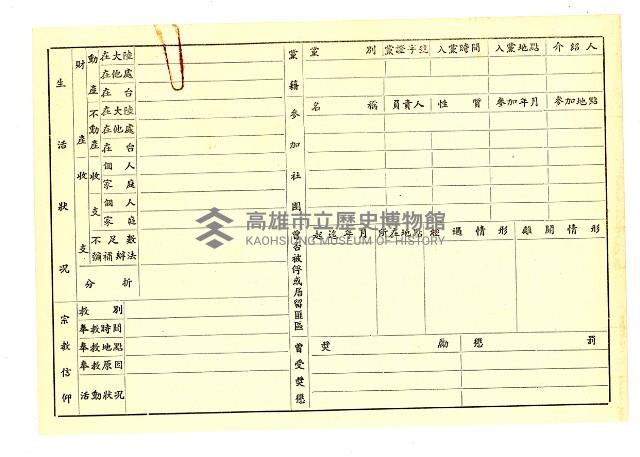 生活狀況
財產
動產
在大陸
在他處
在台
不動產
在大陸
在他處
在台
收支
收
個人
家庭
支
個人
家庭
不足數
彌補辦法
分析
宗教信仰
教別
奉教時間
奉教地點
奉教原因
活動狀況
黨籍
黨別 黨證字號 入黨時間 入黨地點 介紹人
參加社團
名稱 負責人 性質 參加年月 參加地點
曾否被俘或居留匪區
起迄年月 所在地點 經過情形 離開情形
曾受獎懲
獎勵 懲罰
高雄市立歷史博物館
KAOHSIUNG MUSEUM OF HISTORY